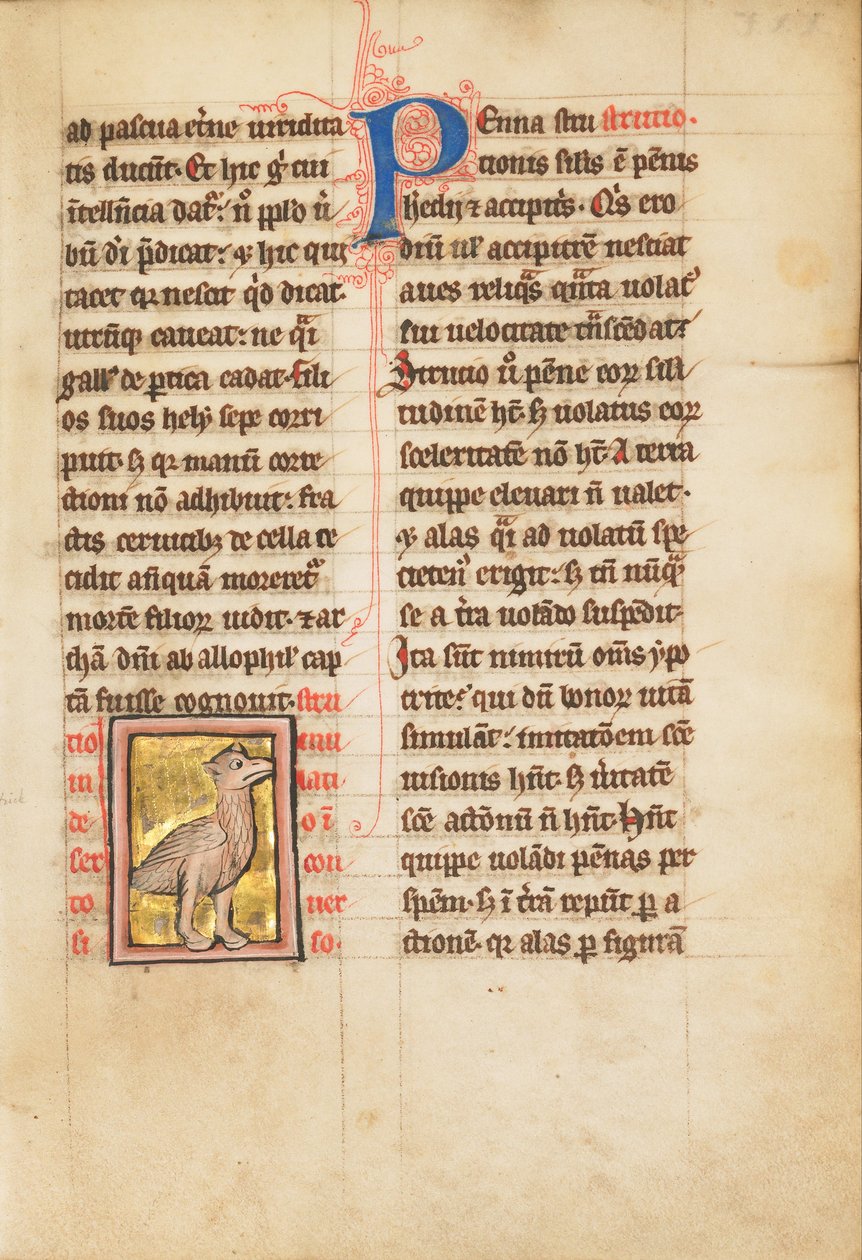 ad pascua et̉ne uiridita
tis ducūt. Et hic g̉ cui
ītelliñcia dat̉. n̉ p̄plo ū
bū dī p̄dicat. ⁊ hic qui
tacet qꝛ nescit q̉d dicat.
utrūqꝫ caueat. ne q̄i
gall̉ de ꝑtica cadat. Fili
os suos hely sepe corri
puit. sꝫ qꝛ manū corre
ctioni nō adhibuit. fra
ctis ceruicibꝫ de cella ce
cidit. añquā moreret̉
mortē filioꝝ audit. ⁊ ar
chā dn̄i ab allophil̉ cap
tā fuisse cognouit. stru
tio mu
in lati
de o ī
ser con
to uer
si so.
Penna stru strutio.
ctionis silis ē pēnis
herdii ⁊ accipit̉s. Q̉s ero
diū ul̉ accipitrē nesciat
aues reliq̄s q̄nta uolat̉
sui uelocitate t̄nscēdat.
Strutio ū̉ pēne eoꝝ sili
tudinē hꝫ. sꝫ uolatus eoꝝ
sceleritatē nō hꝫ. A terra
quippe eleuari n̄ ualet.
⁊ alas q̄i ad uolatū spe
cieten̉ erigit. sꝫ tn̄ nūq̄
se a t̉ra uolādo suspēdit.
Ita sūt nimirū om̄s ypo
crite. qui dū bonoꝝ uitā
simulāt. imitatōem sc̄e
uisionis hn̄t. sꝫ ū̉itatē
sc̄e actōnū n̄ hn̄t. Hn̄t
quippe uolādi pēnas per
spēm. sꝫ ī t̉rā reptūt ꝑ a
ctionē. qꝛ alas ꝑ figurā